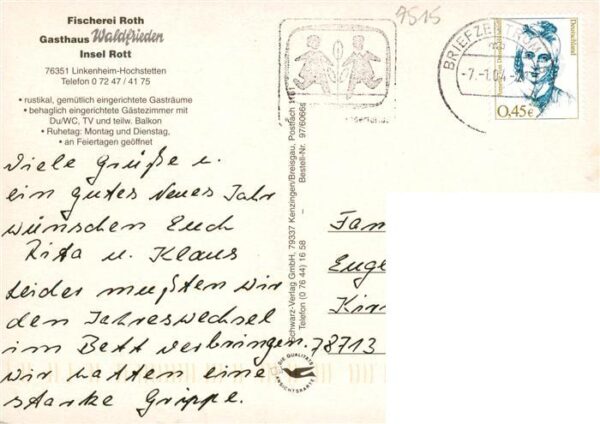 Fischerei Roth
Gasthaus Waldfrieden
Insel Rott
76351 Linkenheim-Hochstetten
Telefon 0 72 47 / 41 75
• rustikal, gemütlich eingerichtete Gasträume
• behaglich eingerichtete Gästezimmer mit
Du/WC, TV und teilw. Balkon
• Ruhetag: Montag und Dienstag,
• an Feiertagen geöffnet
Viele Grüße u.
ein gutes Neues Jahr
wünschen Euch
Rita u. Klaus
Leider mußten wir
den Jahreswechsel
im Bett verbringen.
wir hatten eine
starke Grippe.
Schwarz-Verlag GmbH, 79337 Kenzingen/Breisgau, Postfach 1161
Telefon (0 76 44) 16 58 – Bestell-Nr. 97/6066s
DIE QUALITÄTS
ANSICHTSKARTE
9515
BRIEFZENTRUM
-7.-1.04-
Deutschland
0,45€
Fam
Euge
Kir
78713